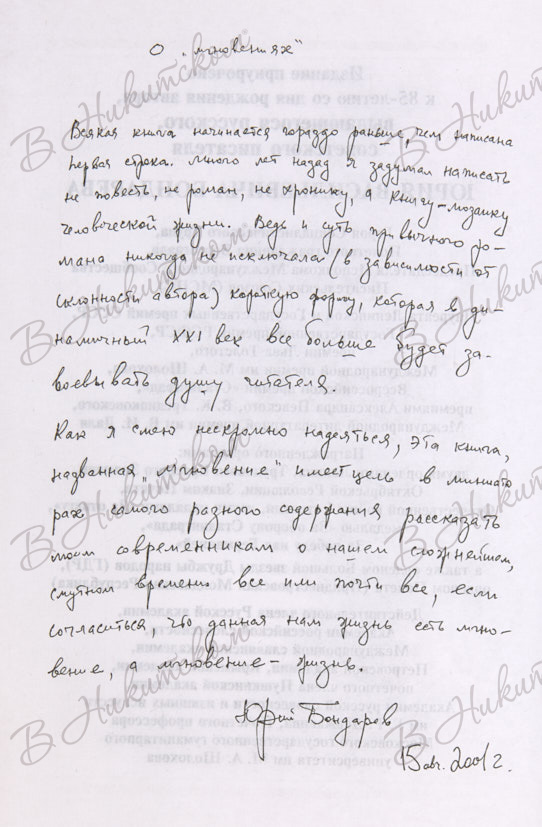 О „мгновениях"
Всякая книга начинается гораздо раньше, чем написана
первая строка. Много лет назад я задумал написать
не повесть, не роман, не хронику, а книгу-мозаику
человеческой жизни. Ведь и суть привычного ро-
мана никогда не исключала (в зависимости от
склонности автора) короткую форму, которая в ди-
намичный XXI век все больше будет за-
воевывать душу читателя.
Как я смею нескромно надеяться, эта книга,
названная „Мгновение" имеет цель в миниатю
рах самого разного содержания рассказать
моим современникам о нашем сложнейшем,
смутном времени все или почти все, если
согласиться, что данная нам жизнь есть мгно-
вение, а мгновение - жизнь.
Юрий Бондарев
15 авг. 2001 г.
В. Никитском